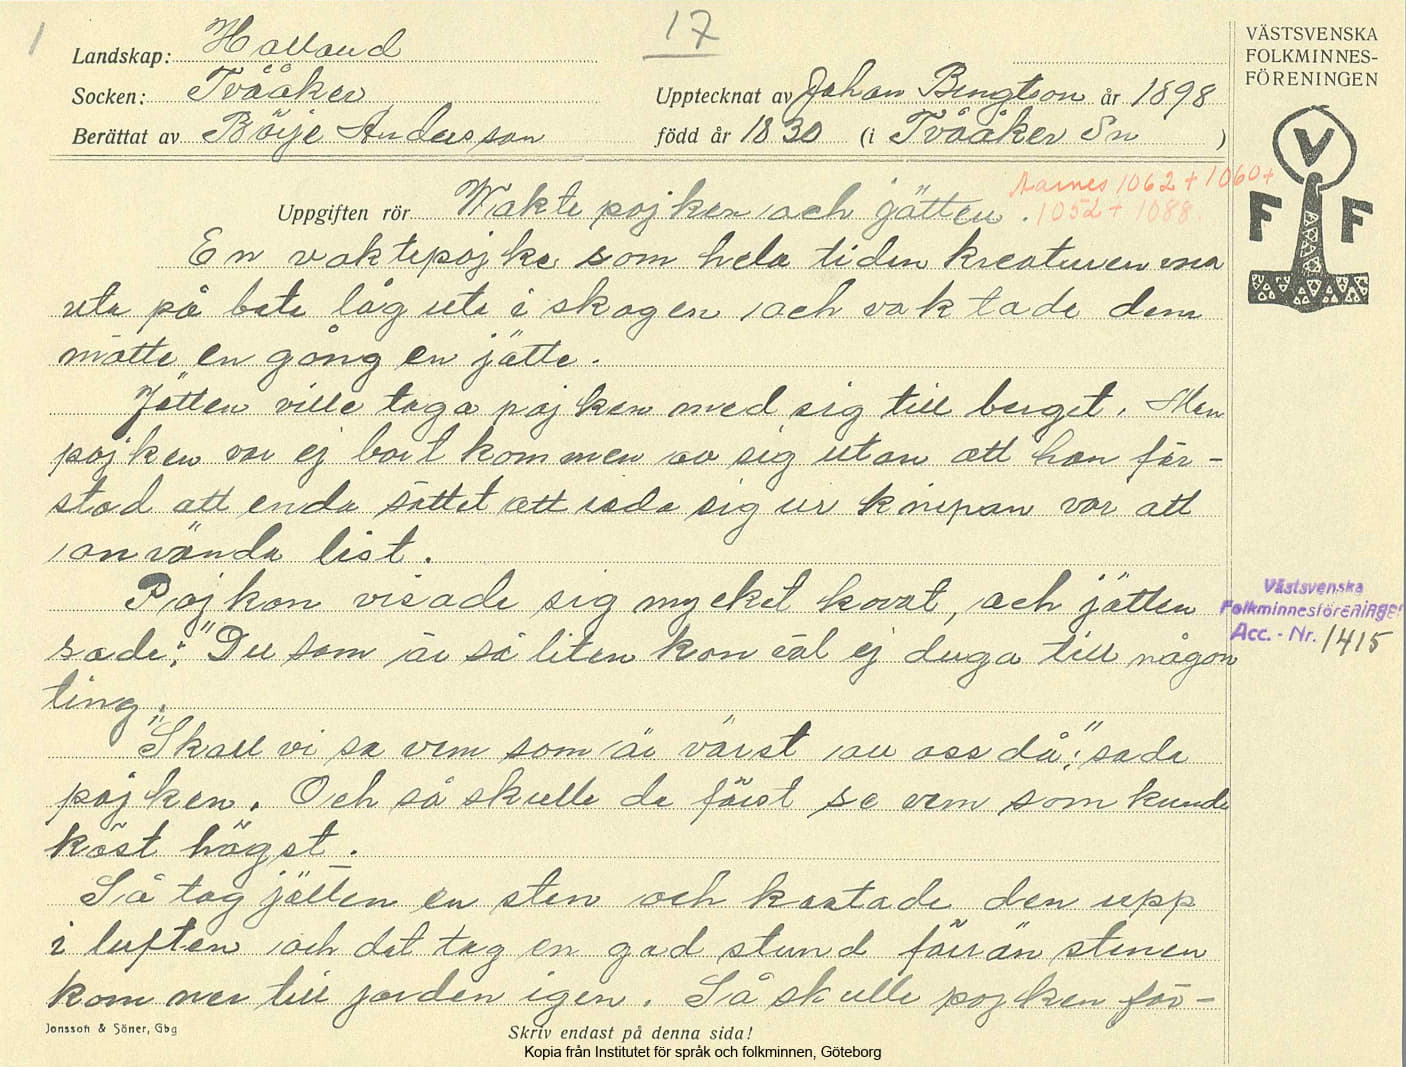 1
17
Landskap: Halland
Socken: Tvååker
Upptecknat av Johan Bengtson år 1898
Berättat av Börje Andersson
född år 1830 (i Tvååker Sn )
VÄSTSVENSKA
FOLKMINNES-
FÖRENINGEN
V
F F
Aarnes 1062 + 1060 +
1052 + 1088.
Uppgiften rör Waktepojken och jätten.
En vaktepojke som hela tiden kreaturen var
ute på bete låg ute i skogen och vaktade dem
mötte en gång en jätte.
Jätten ville taga pojken med sig till berget. Men
pojken var ej bort kommen av sig utan att han för-
stod att enda sättet att reda sig ur knipan var att
använda list.
Pojken visade sig mycket kavat, och jätten
sade: "Du som är så liten kan väl ej duga till någon
ting.
"Skall vi se vem som är värst au oss då", sade
pojken. Och så skulle de först se vem som kunde
kast högst.
Så tog jätten en sten och kastade den upp
i luften och det tog en god stund förrän stenen
kom ner till jorden igen. Så skulle pojken för-
Västsvenska
Folkminnesföreningen
Acc. - Nr. 1415
Jonsson & Söner, Gbg
Skriv endast på denna sida!
Kopia från Institutet för språk och folkminnen, Göteborg